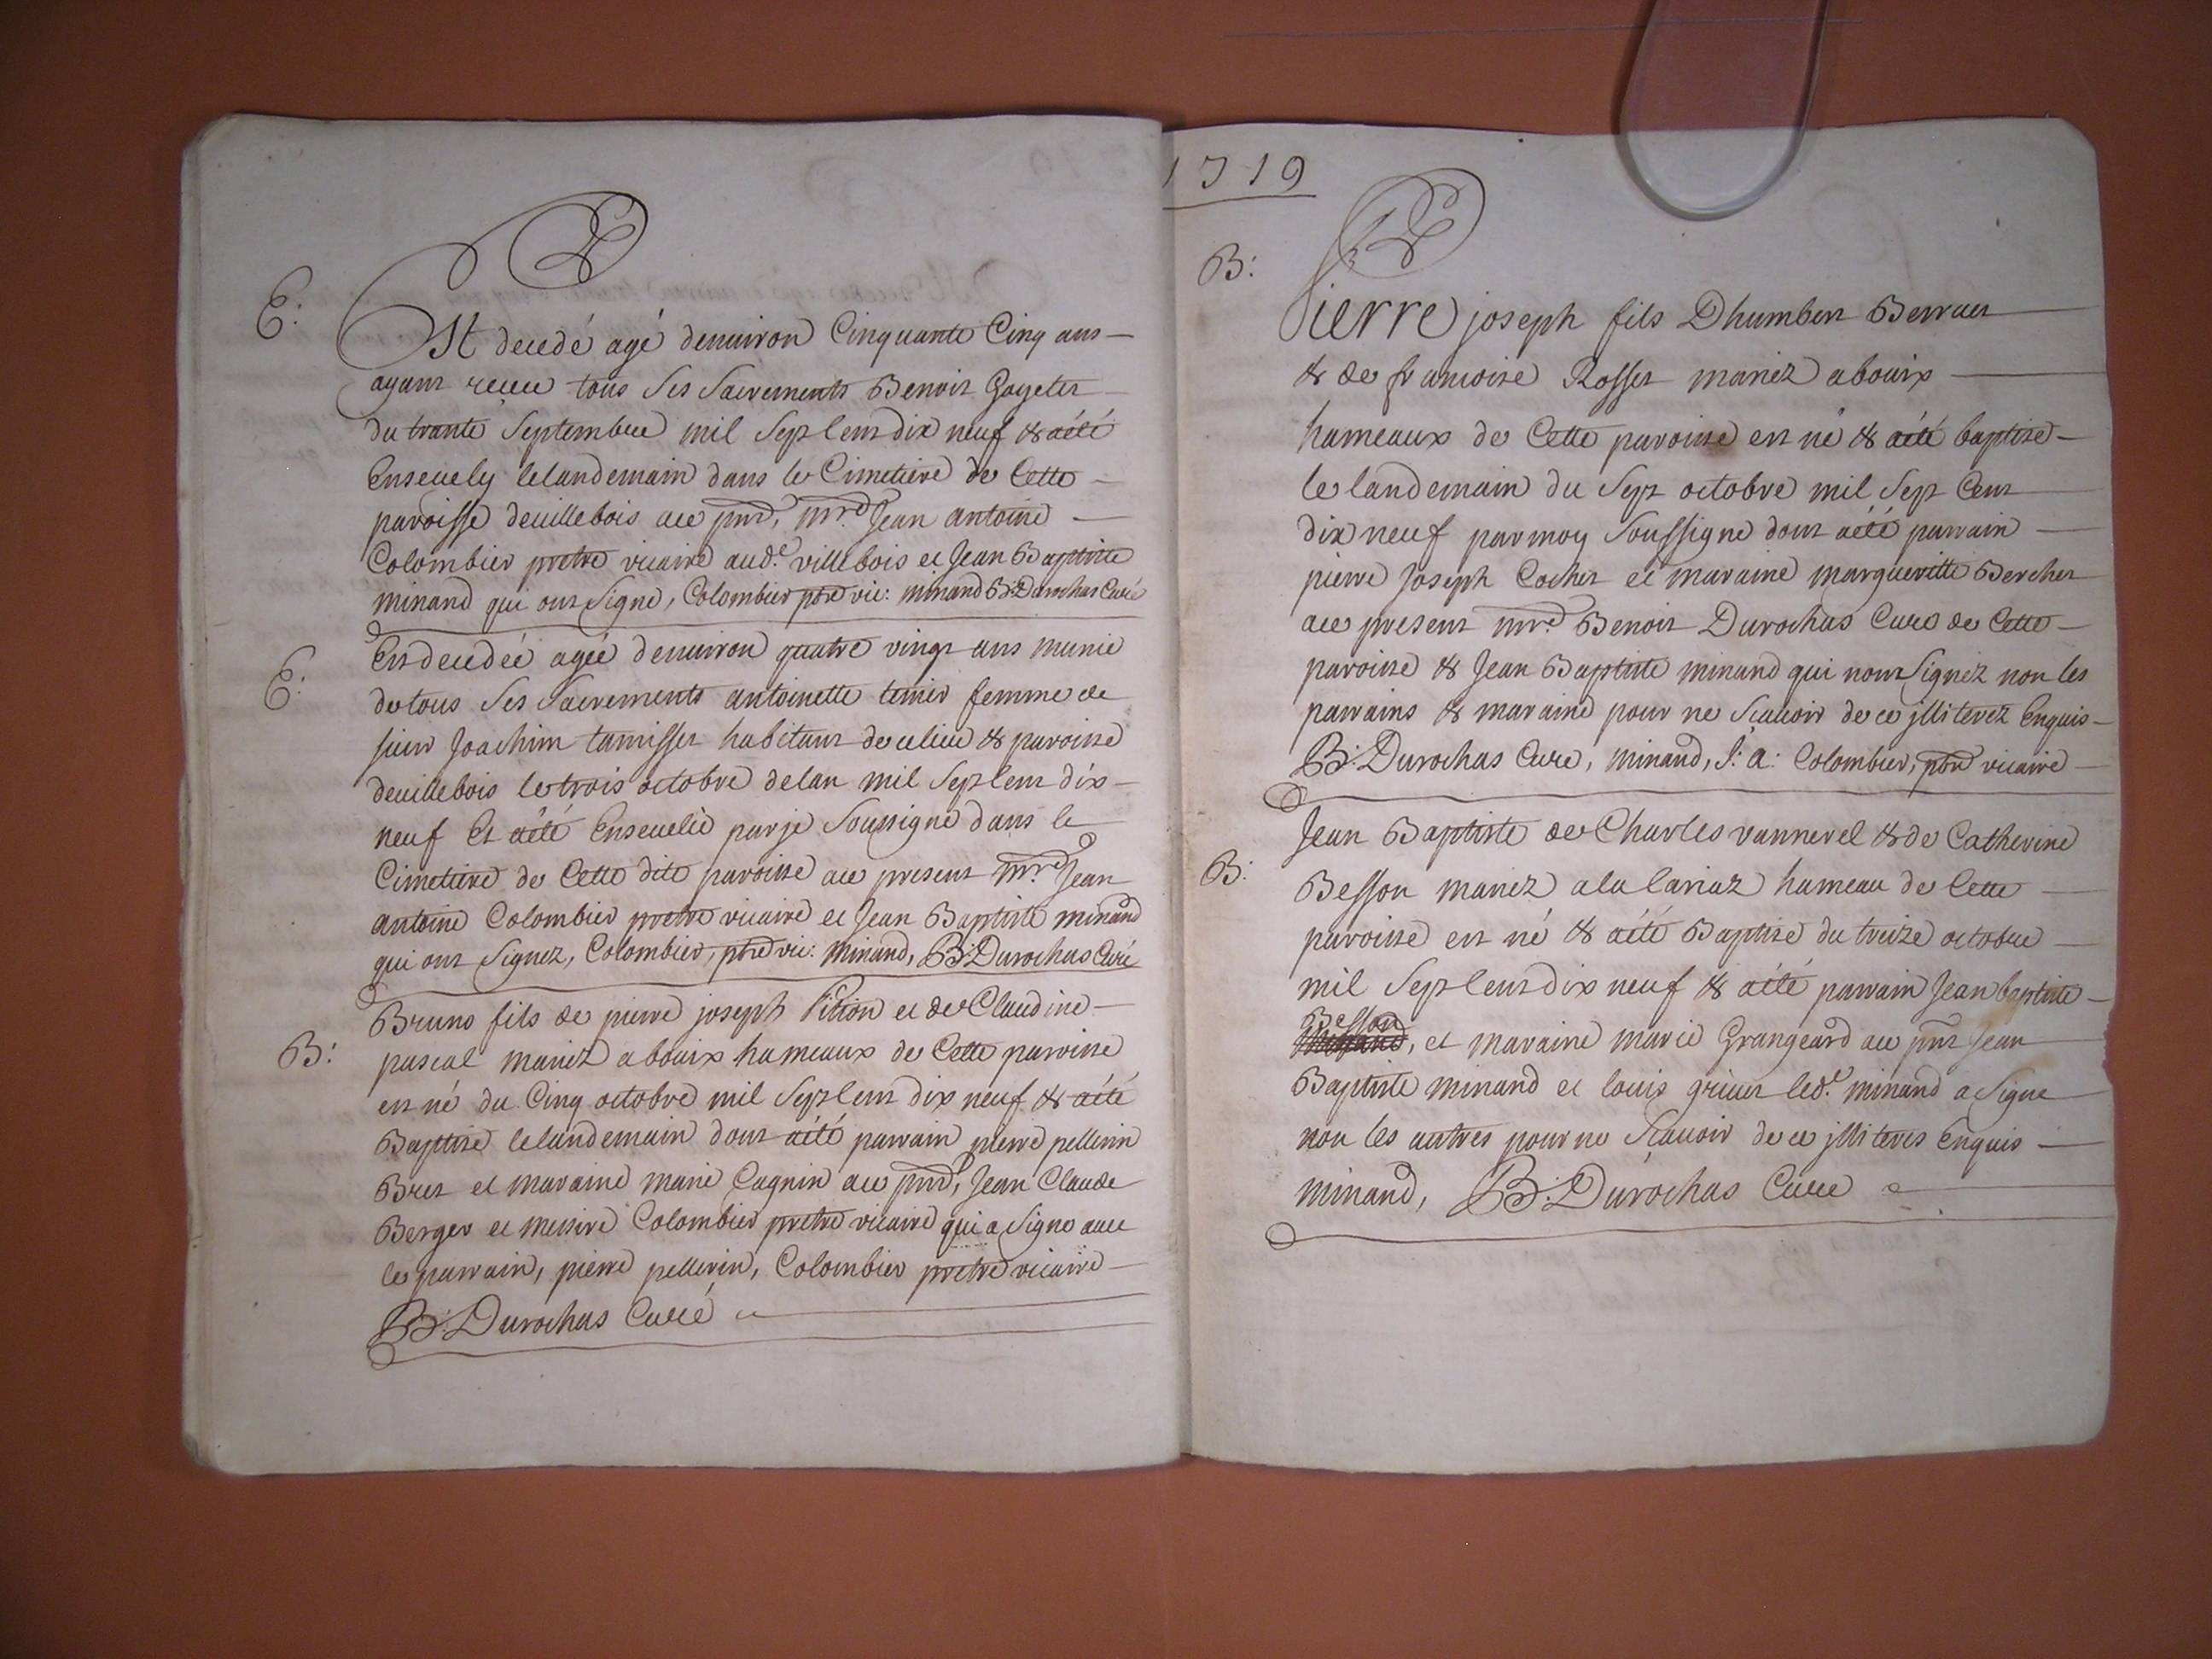 E:
Est decedé agé denuiron Cinquante Cinq ans
ayant receu tous ses sacrements Benoit Gayetet
du trante septembre mil sept cent dix neuf & aété
Enseuely le landemain dans le Cimetiere de Cette
paroisse deuillebois ace pnt, mre Jean antoine
Colombier pretre vicaire aud.e villebois et Jean Baptiste
minand qui ont signé, Colombier ptre vic: minand B: Durochas Curé
E:
Est decedée agée denuiron quatre vingt ans munie
de tous ses sacrements antoinette femme de
sieur Joachim tamisset habitant de ce lieu & paroisse
deuillebois le trois octobre de lan mil sept cent dix
neuf Et aété Enseuelie par je soussigné dans le
Cimetiere de Cette dite paroisse ace present mre Jean
antoine Colombier pretre vicaire et Jean Baptiste minand
qui ont signez, Colombier, ptre vic: minand, B: Durochas Curé
B:
Bruno fils de pierre joseph et de Claudine
pascal mariez a bouix hameaux de Cette paroisse
est né du Cinq octobre mil sept cent dix neuf & aété
Baptisé le landemain dont aété parrain pierre pellerin
Bret et maraine marie Cagnin ace pnt, Jean Claude
Berger et messire Colombier pretre vicaire qui a signé auec
le parrain, pierre pellerin, Colombier pretre vicaire
B: Durochas Curé
1719
B:
Pierre joseph fils Dhumbert
& de francoise Rosset mariez a bouix
hameaux de Cette paroisse est né & aété baptisé
le landemain du sept octobre mil sept Cent
dix neuf par moy soussigné dont aété parrain
pierre Joseph Cochet et maraine margueritte Berchet
ace present mre Benoit Durochas Curé de Cette
paroisse & Jean Baptiste minand qui nont signéz non les
parrains & maraine pour ne scauoir de ce jlliterez Enquis
B: Durochas Curé, minand, J: a: Colombier, ptre vicaire
B:
Jean Baptiste de Charles vannerel & de Catherine
Besson mariez a la lariaz hameau de Cette
paroisse est né & aété Baptisé du treize octobre
mil sept cent dix neuf & aété parrain Jean baptiste
Besson
, et maraine marie Grangeard ace pnt Jean
Baptiste minand et louis led.e minand a signé
non les autres pour ne scauoir de ce jlliterés Enquis
minand, B: Durochas Curé